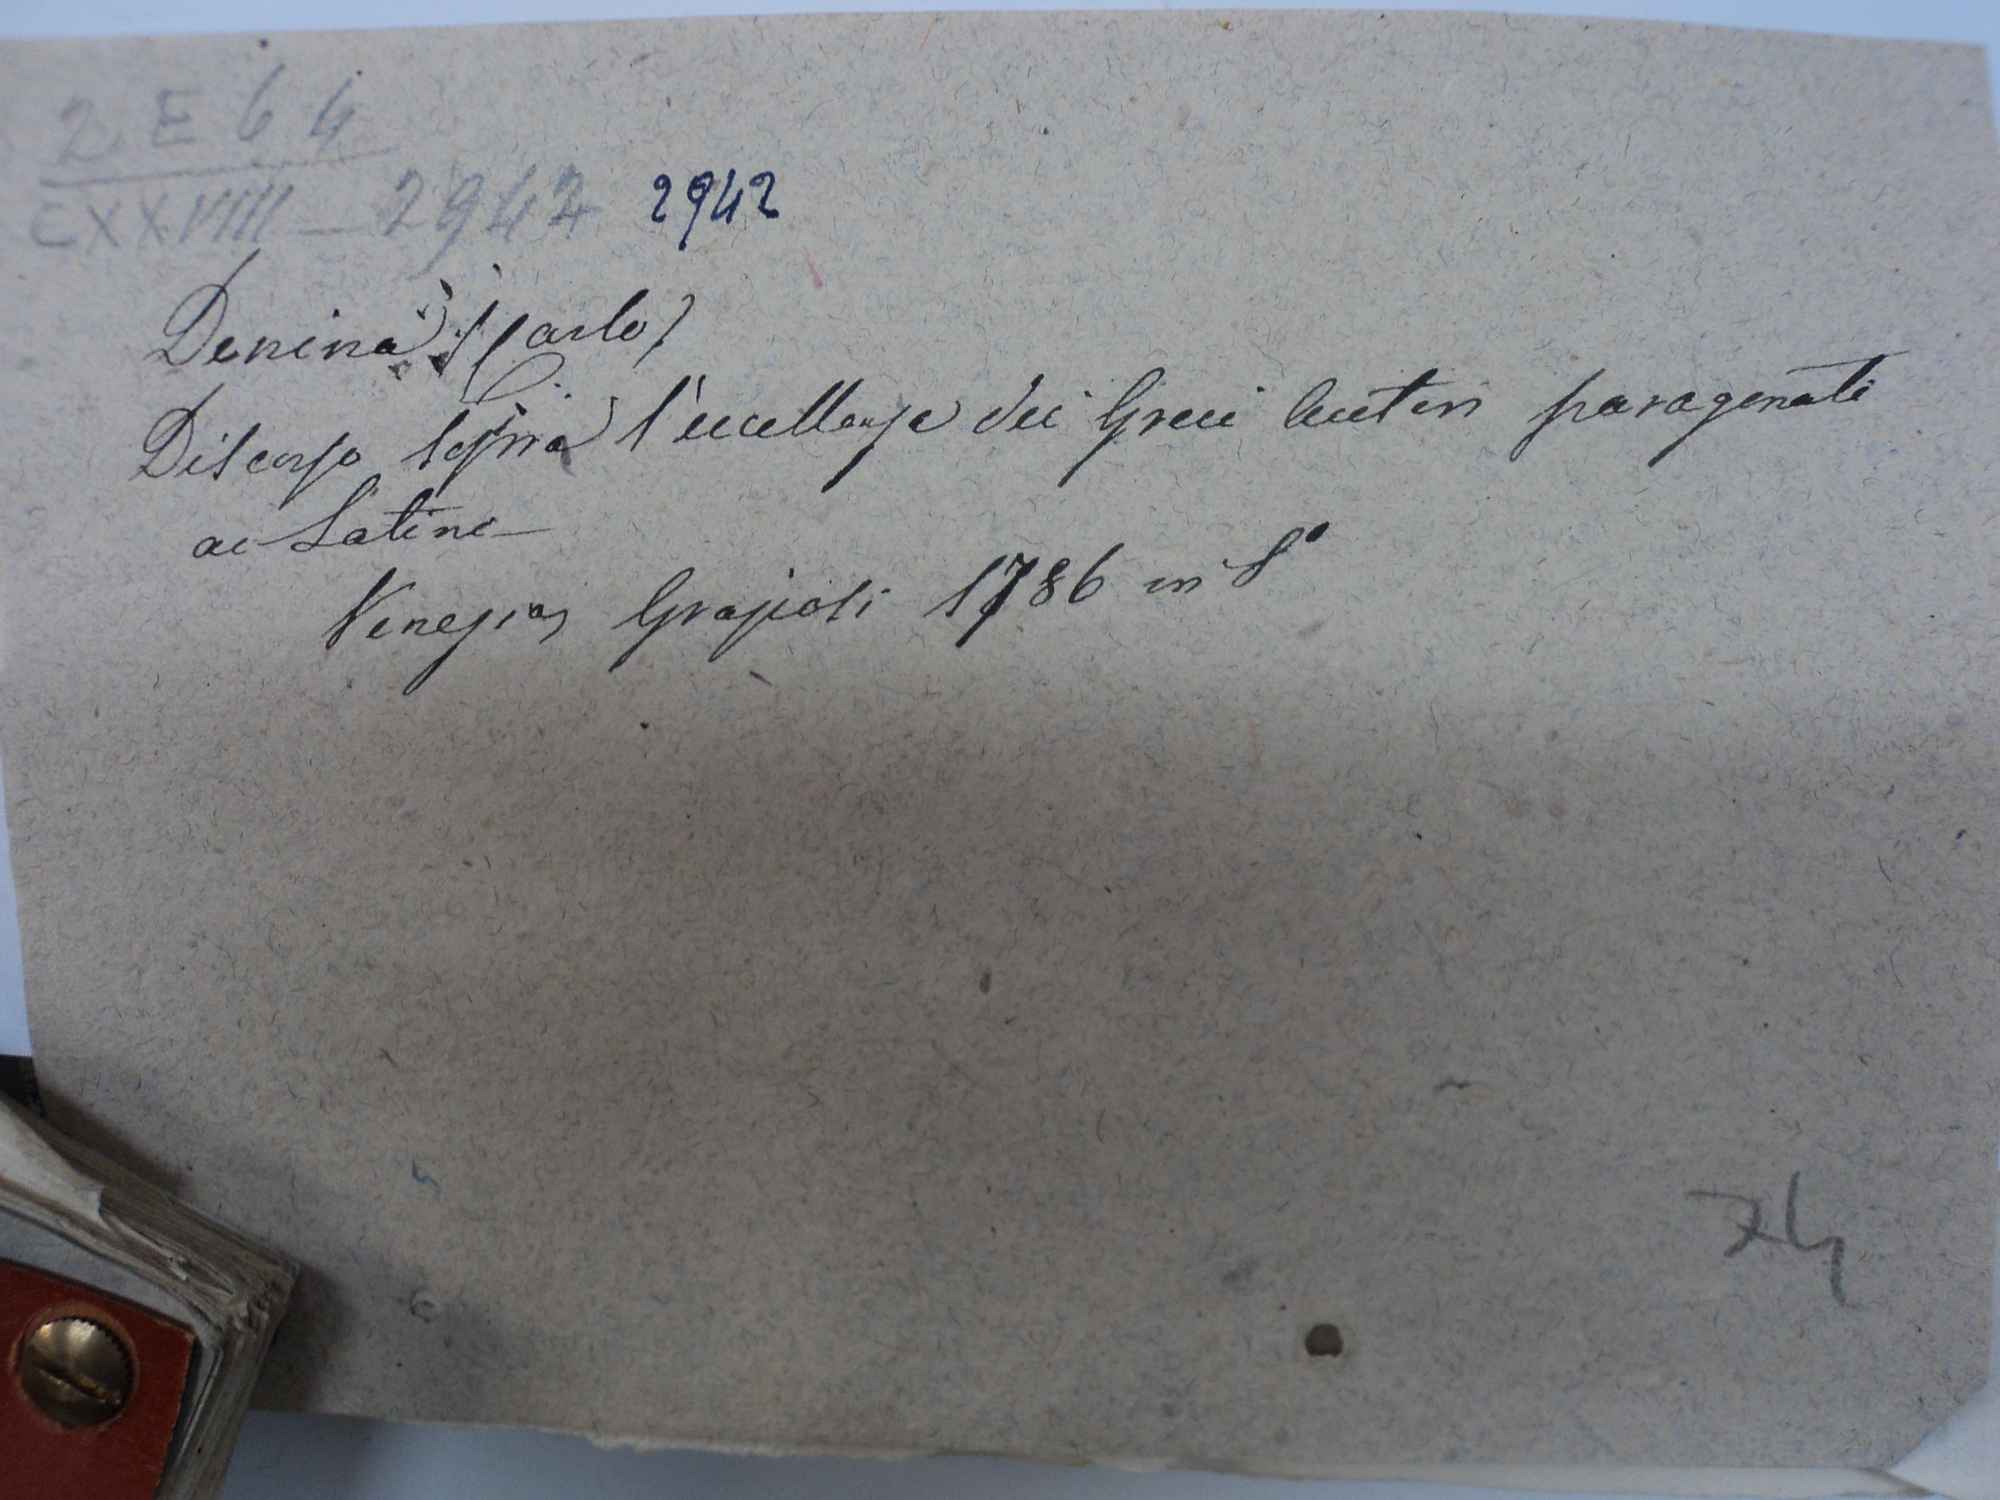 2 E 64
CXXVIII — 2942 2942
Denina (Carlo)
Discorso sopra l'eccellenza dei Greci Autori paragonati
ai Latini
Venezia, Grazioli 1786 in 8°